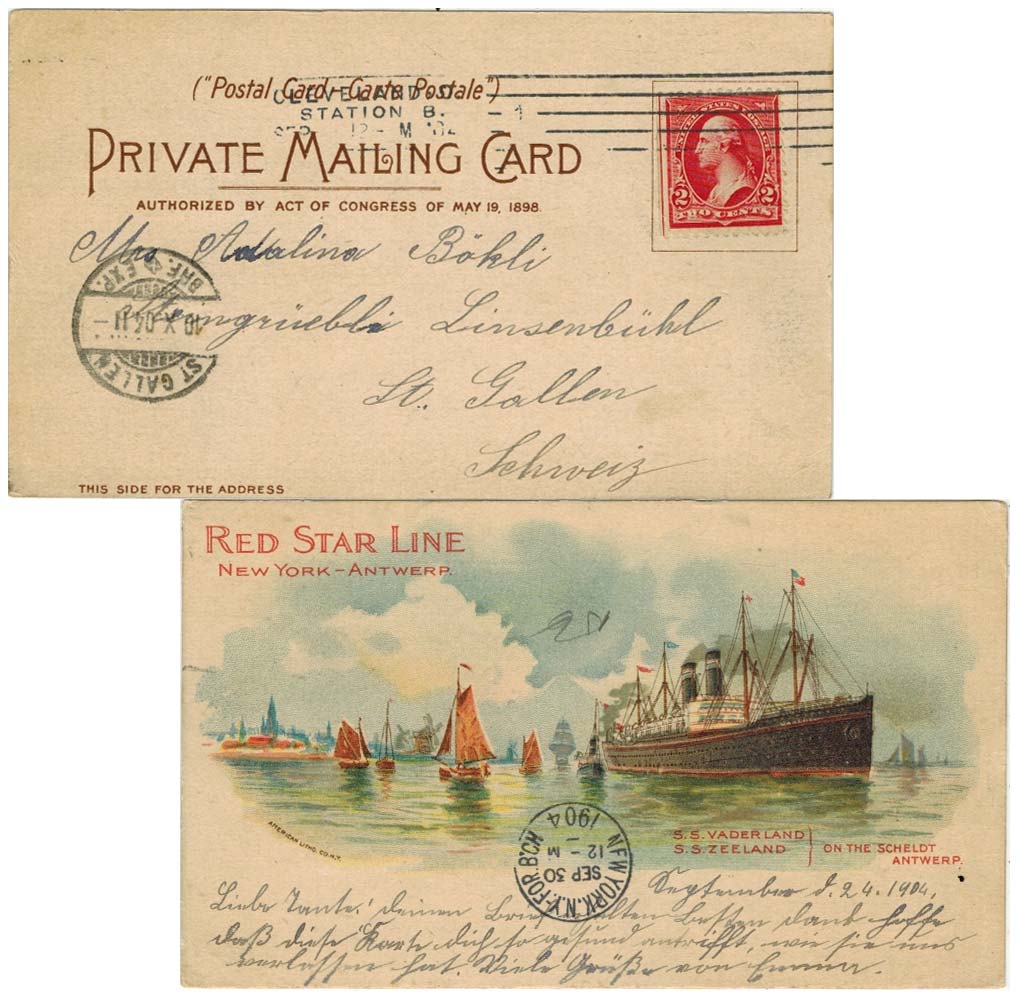 ("Postal Card - Carte Postale")
CLEVELAND. O.
STATION B.
12 - M
1
PRIVATE MAILING CARD
AUTHORIZED BY ACT OF CONGRESS OF MAY 19, 1898.
UNITED STATES POSTAGE
2 2
TWO CENTS
Mrs Adalina Bökli
Steingrüebli Linsenbühl
St. Gallen
Schweiz
ST GALLEN
10 X 04 11 -
BRF. EXP.
THIS SIDE FOR THE ADDRESS
RED STAR LINE
NEW YORK - ANTWERP.
AMERICAN LITHO. CO. N.Y.
S.S. VADERLAND
S.S. ZEELAND
ON THE SCHELDT
ANTWERP.
NEW YORK. N.Y. FOR. B'CH
SEP 30
12 - M
1904
September d. 24. 1904.
Liebe Tante! deinen Brief erhalten Besten dank hoffe
daß diese Karte dich so gesund antrifft, wie sie uns
verlassen hat. Viele Grüße von Emma.